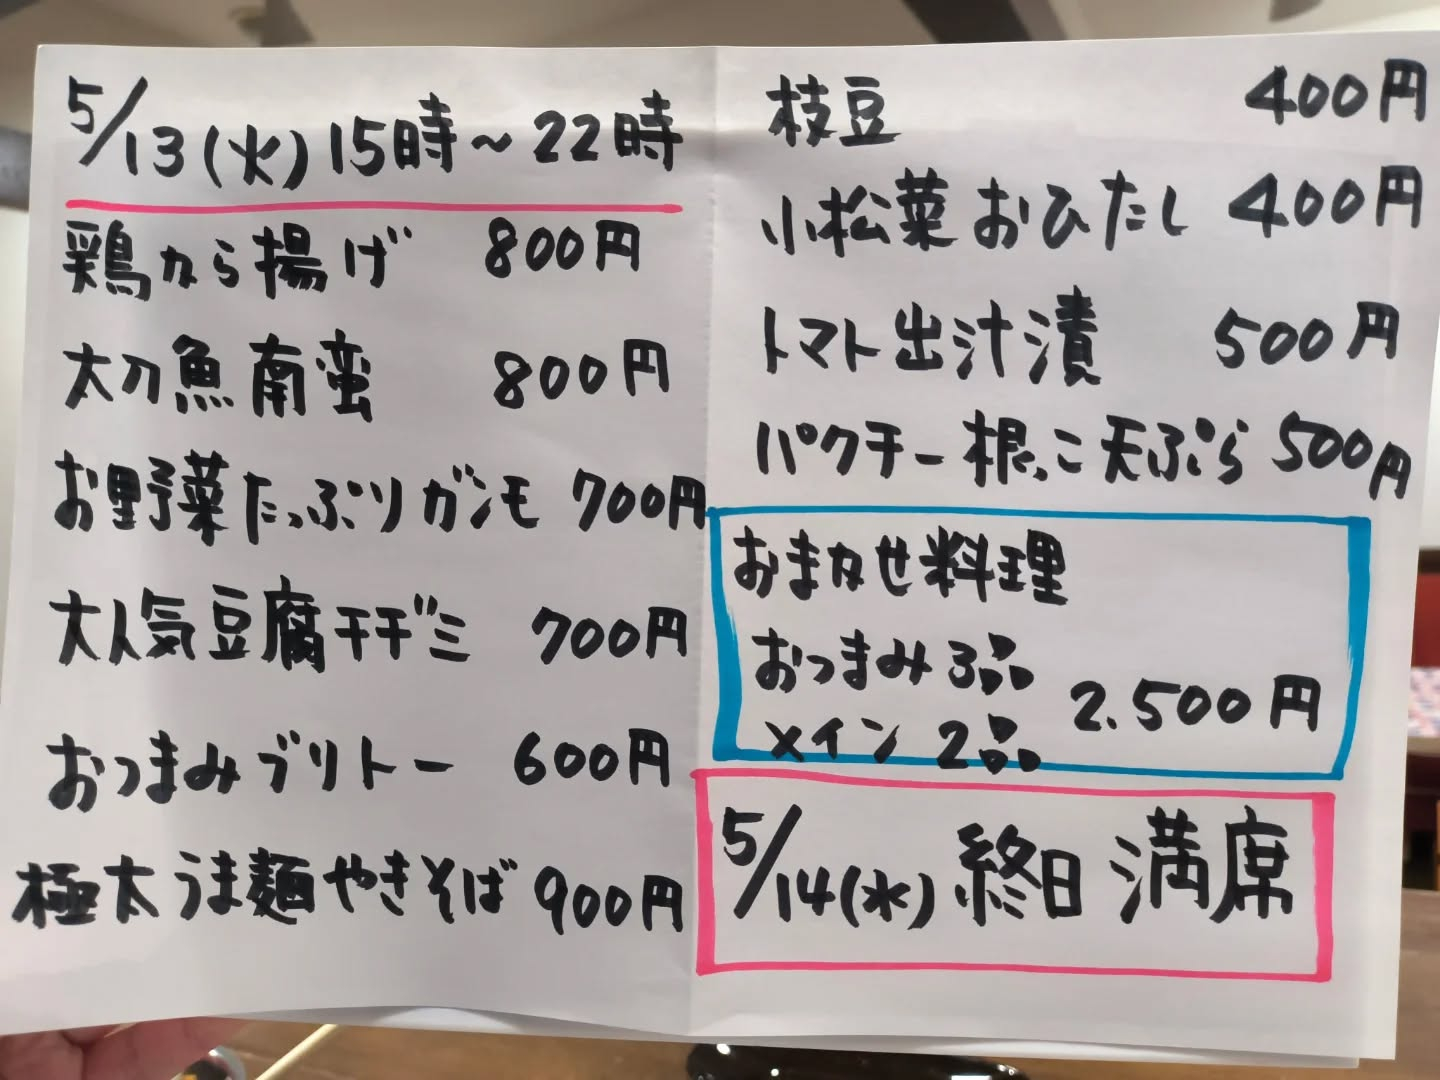 5/13(火)15時~22時
鶏から揚げ 800円
太刀魚南蛮 800円
お野菜たっぷりガンモ 700円
大人気豆腐チヂミ 700円
おつまみブリトー 600円
極太うま麺やきそば 900円
枝豆 400円
小松菜おひたし 400円
トマト出汁漬 500円
パクチー根っこ天ぷら 500円
おまかせ料理
おつまみ3品
メイン2品 2.500円
5/14(水)終日満席